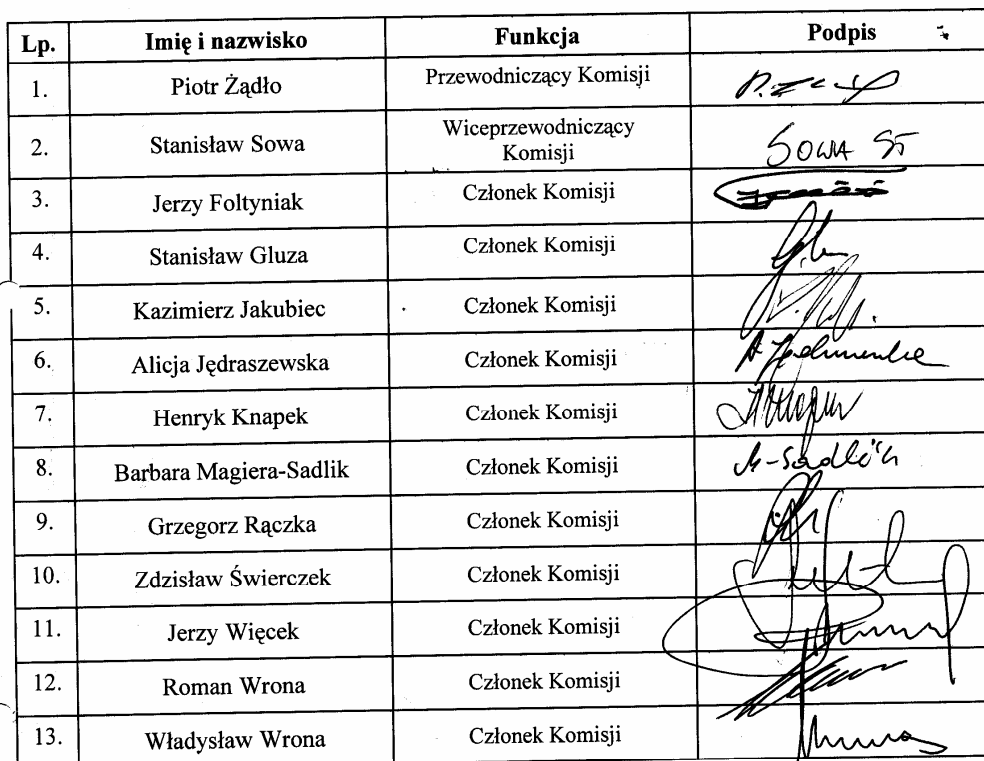 Lp. Imię i nazwisko Funkcja Podpis
1. Piotr Żądło Przewodniczący Komisji
2. Stanisław Sowa Wiceprzewodniczący Komisji SOWA ST
3. Jerzy Foltyniak Członek Komisji
4. Stanisław Gluza Członek Komisji
5. Kazimierz Jakubiec Członek Komisji
6. Alicja Jędraszewska Członek Komisji
7. Henryk Knapek Członek Komisji
8. Barbara Magiera-Sadlik Członek Komisji
9. Grzegorz Rączka Członek Komisji
10. Zdzisław Świerczek Członek Komisji
11. Jerzy Więcek Członek Komisji
12. Roman Wrona Członek Komisji
13. Władysław Wrona Członek Komisji